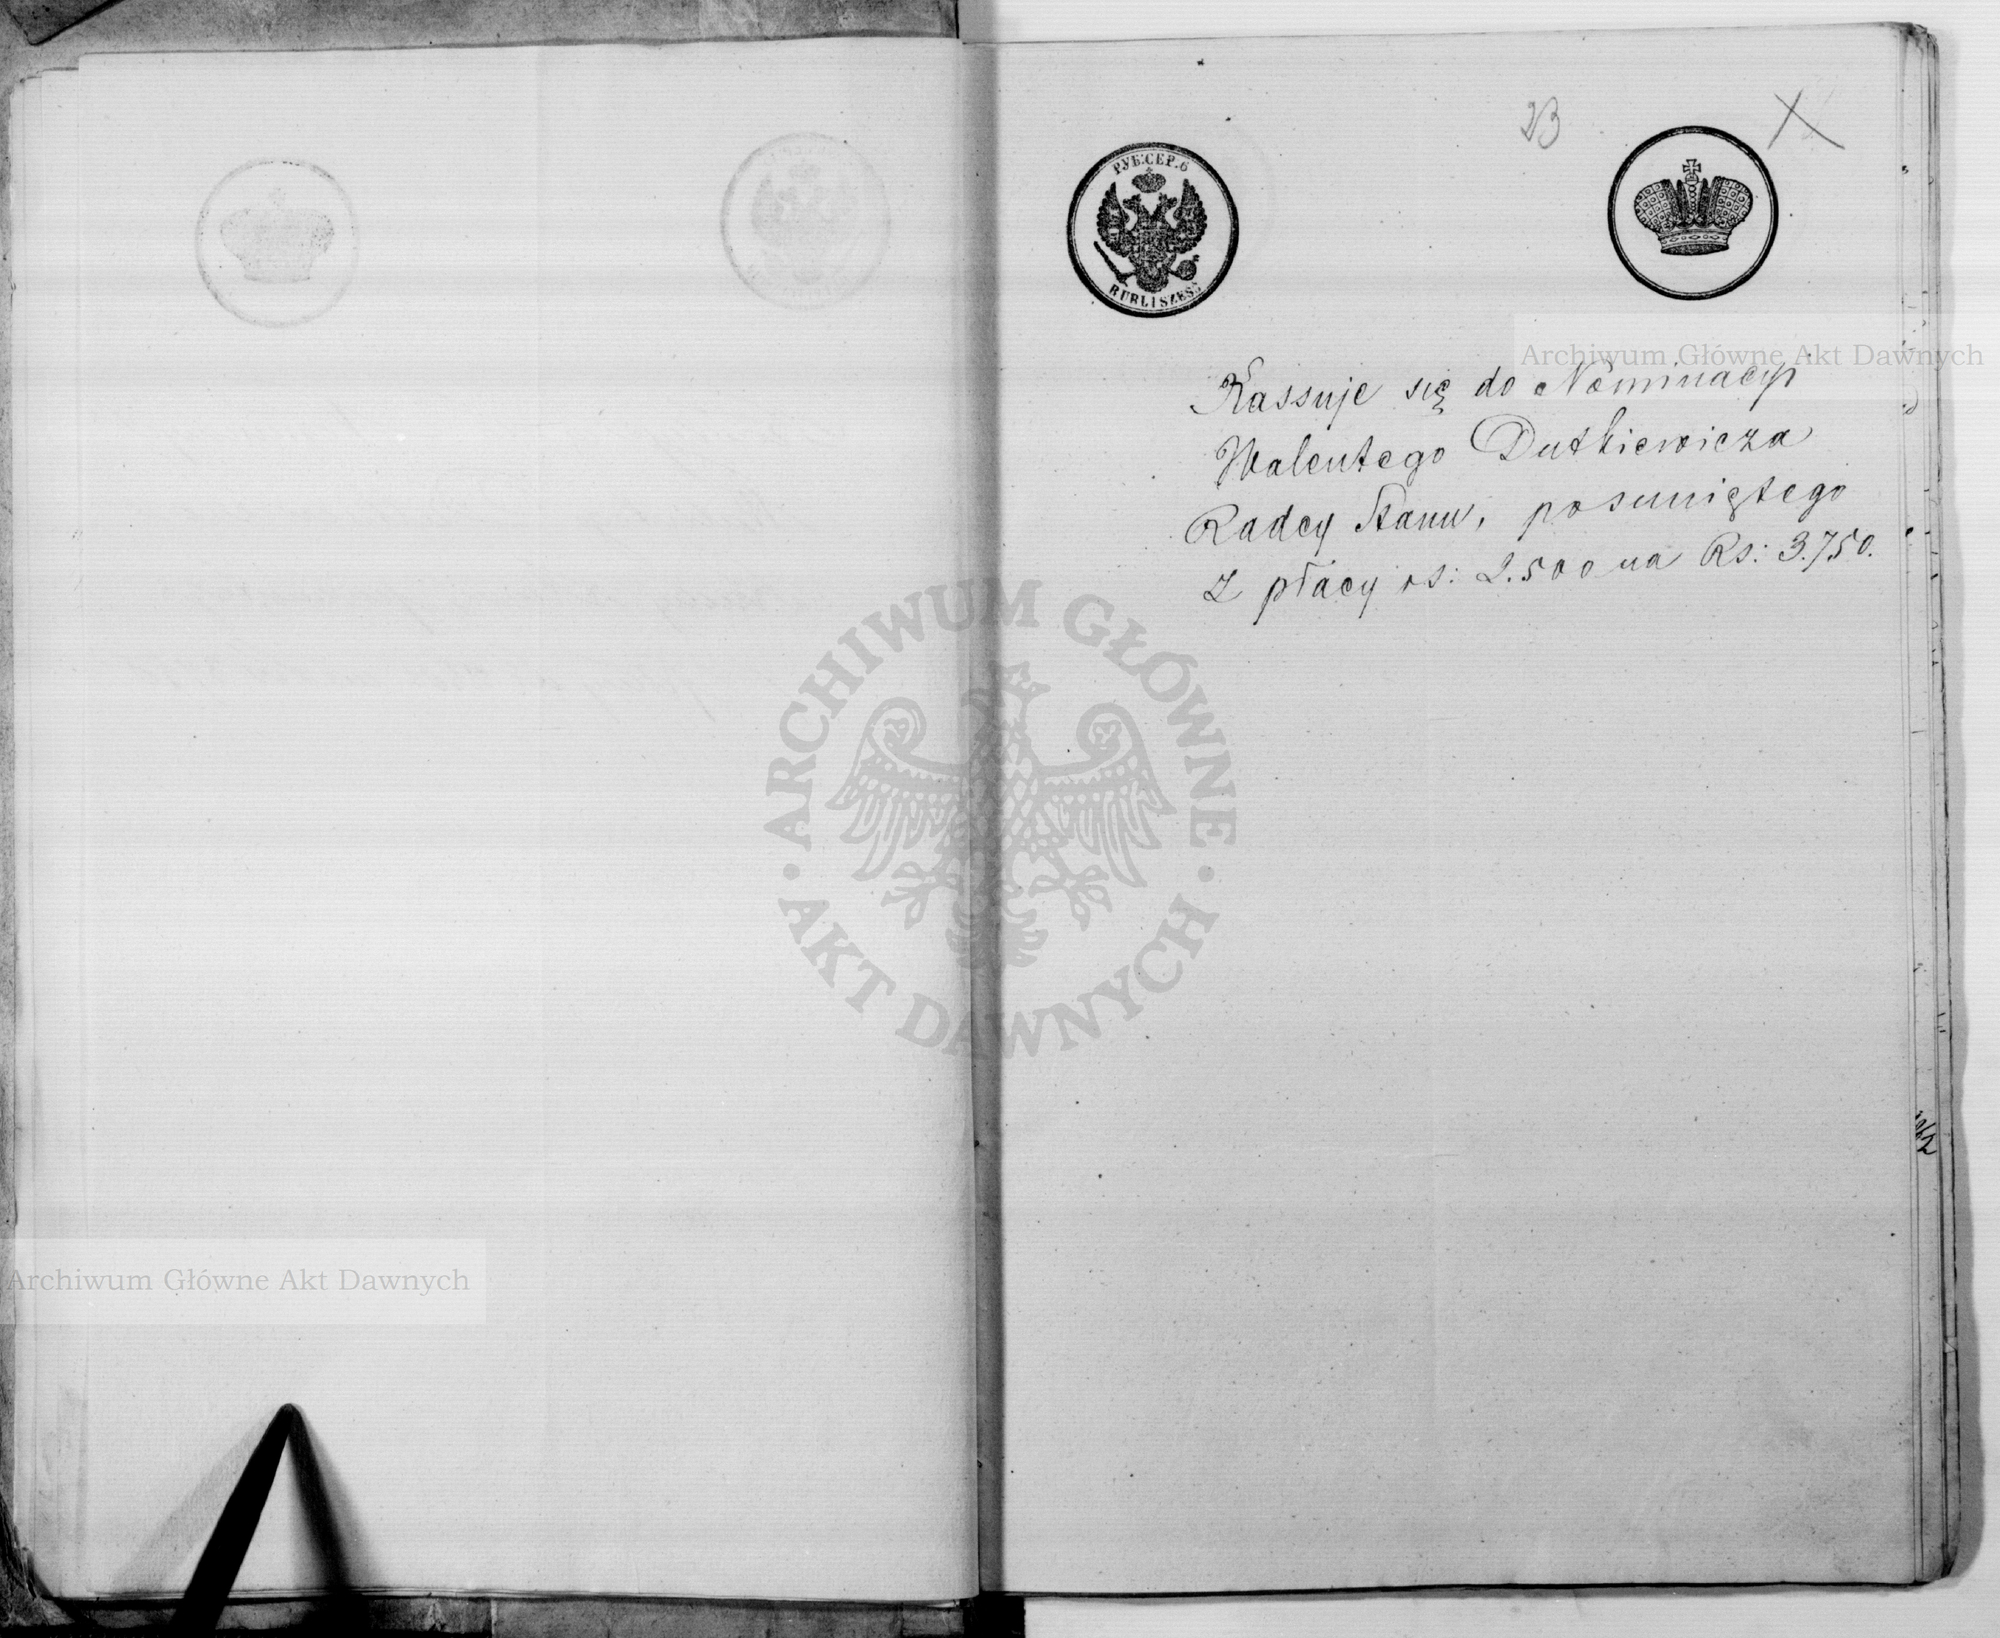 23
РУБ:СЕР. 6
RUBLI SZEŚĆ
Archiwum Główne Akt Dawnych
Kassuje się do Nominacyi
Walentego Dutkiewicza
Radcy Stanu, posuniętego
z płacy rs: 2.500 na Rs: 3.750.
ARCHIWUM GŁÓWNE
AKT DAWNYCH
Archiwum Główne Akt Dawnych